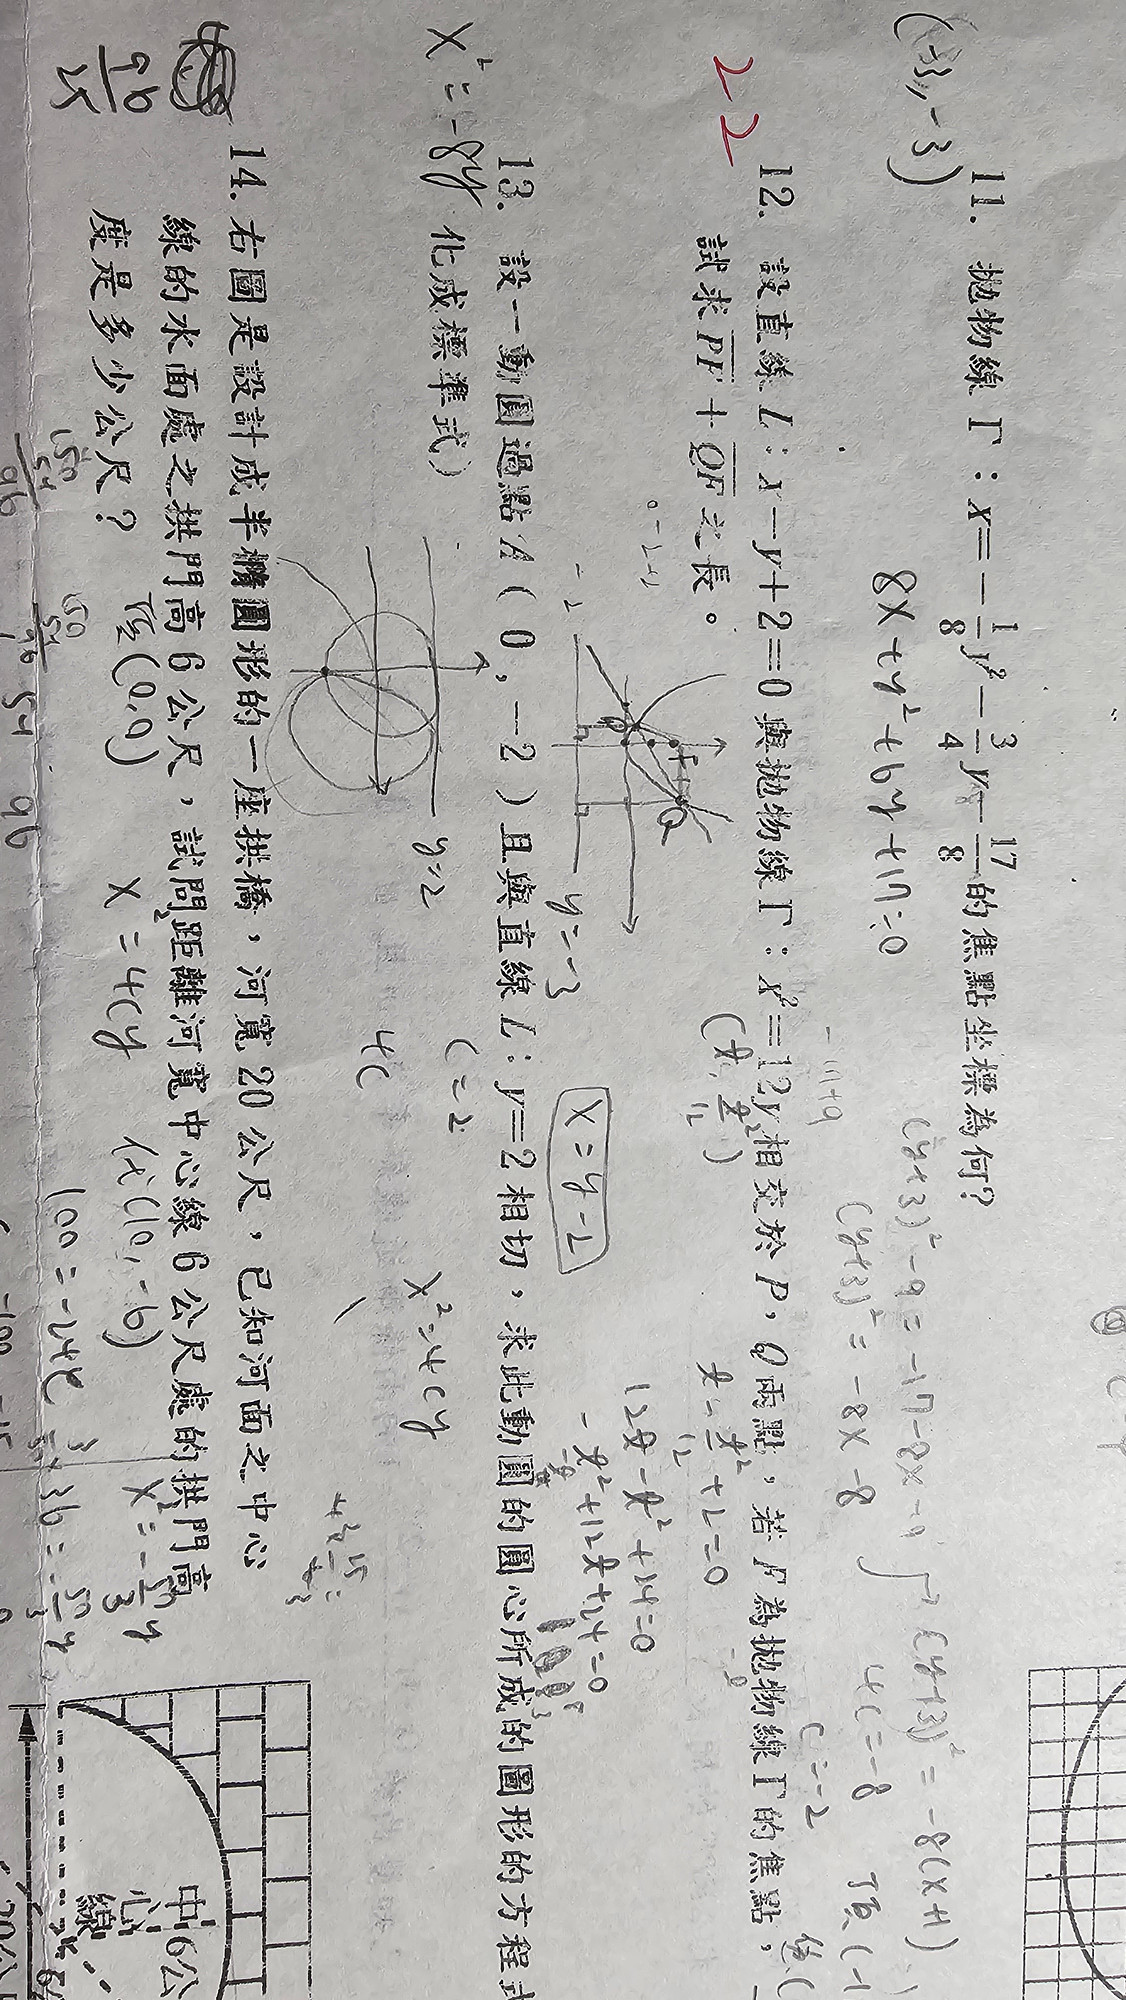 (-3, -3)
11. 拋物線 Γ：x=-1/8y²-3/4y-17/8的焦點坐標為何?
8x+y²+6y+17=0
-17+9
(y+3)²-9=-17-8x
(y+3)²=-8x-8
(y+3)²=-8(x+1)
4c=-8
c=-2
頂(-1
22
12. 設直線 L：x-y+2=0 與拋物線 Γ：x²=12y 相交於 P，Q 兩點，若 F 為拋物線 Γ 的焦點，
試求 PF + QF 之長。
y=-3
F
Q
x=y-2
+2=0
12
+24=0
+24=0
13. 設一動圓過點 A（0，-2）且與直線 L：y=2 相切，求此動圓的圓心所成的圖形的方程式
x²=-8y 化成標準式)
y=2
c=2
4c
x²=4cy
14. 右圖是設計成半橢圓形的一座拱橋，河寬 20 公尺，已知河面之中心
線的水面處之拱門高 6 公尺，試問距離河寬中心線 6 公尺處的拱門高
度是多少公尺？
96/25
(0,0)
x²=4cy
代(10,-6)
x²=-50/3y
100=-24c
36=-50/3y
150
54
96
150
54
96
54
96
中心線
6公
20公